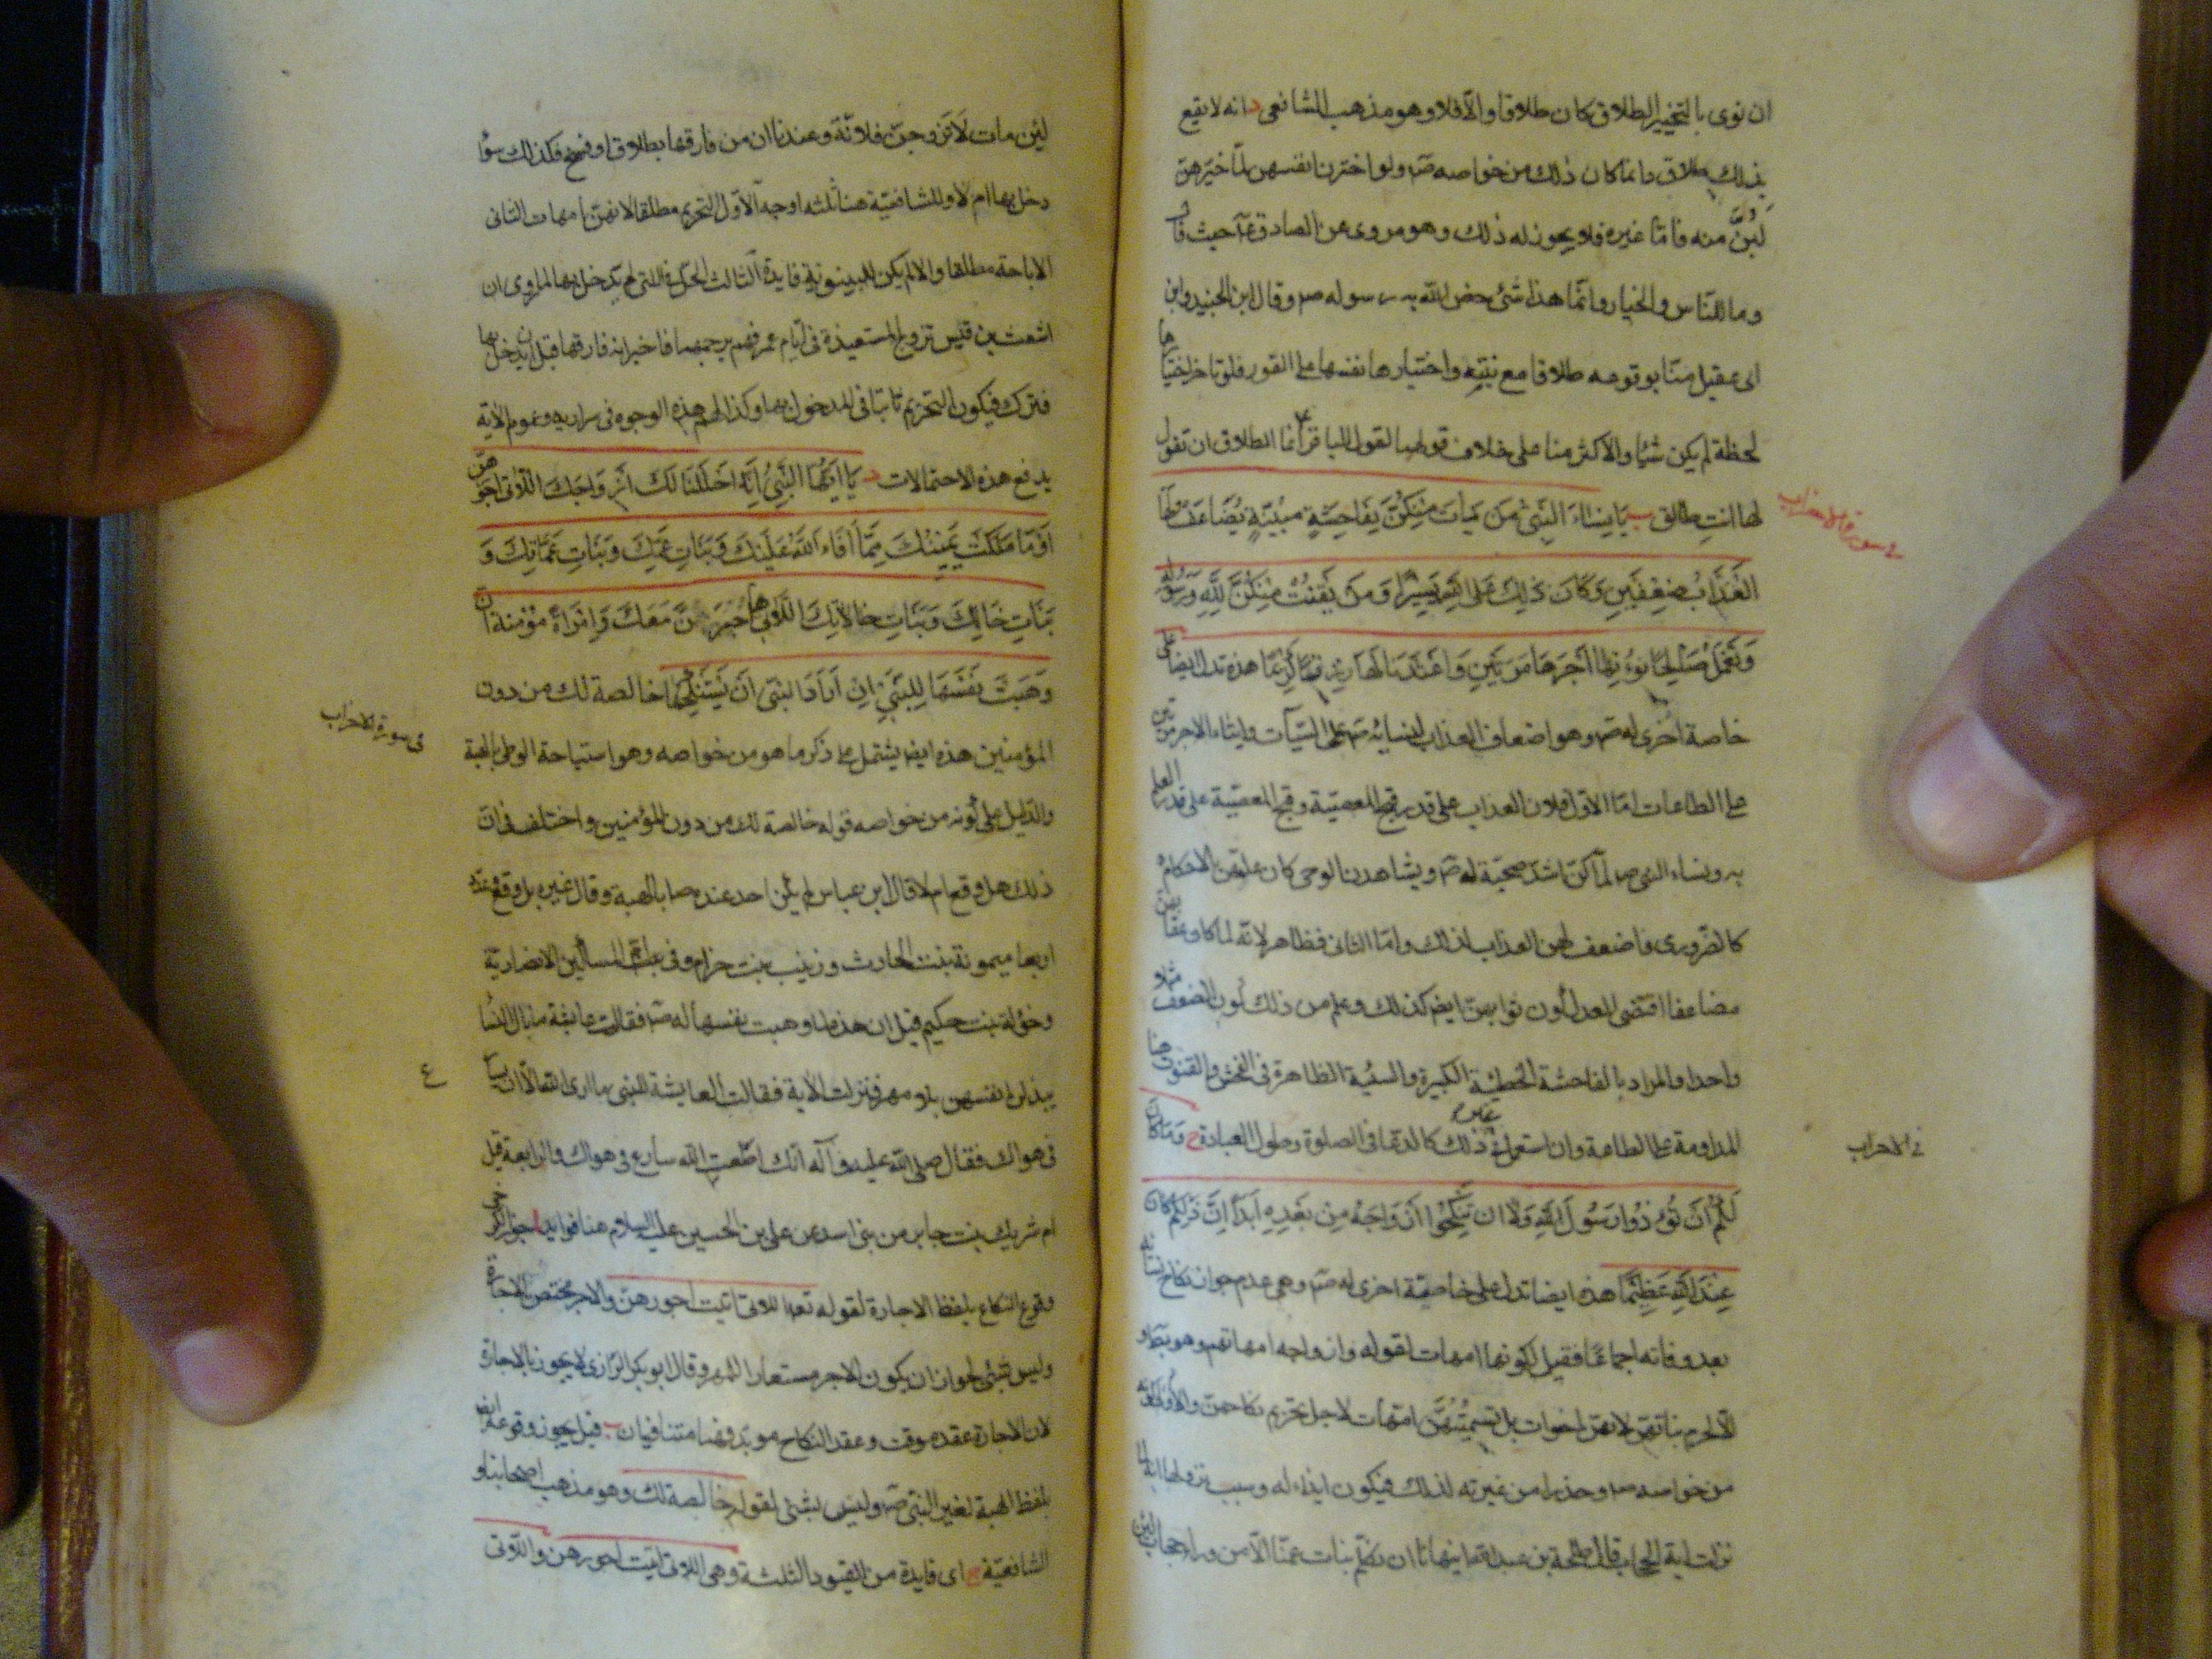 ان نوى بالتخيير الطلاق كان طلاقا والّا فلا وهو مذهب الشافعى د انه لا يقع
بذلك طلاق وانما كان ذلك من خواصه صم ولو اخترن انفسهن لمّا خيّرهن
لبنّ منه فامّا غيره فلا يجوز له ذلك وهو مروى عن الصادق عم حيث قال
وما للنّاس والخيار وانّما هذا شئ خص الله به رسوله صم وقال ابن الجنيد وابن
ابى عقيل منّا بوقوعه طلاقا مع نيته واختيارها نفسها على الفور فلو تاخر اختيارها
لحظة لم يكن شيئا والاكثر منا على خلاف قولهما لقول الباقر ع انما الطلاق ان تقول
لها انت طالق يَا نِسَاءَ النَّبِىِّ مَن يَأتِ مِنكُنَّ بِفَاحِشَةٍ مُبَيِّنَةٍ يُضَاعَفْ لَهَا
فى سورة الاحزاب
الْعَذَابُ ضِعْفَيْنِ وَكَانَ ذَلِكَ عَلَى اللَّهِ يَسِيرًا وَمَن يَقْنُتْ مِنْكُنَّ لِلَّهِ وَرَسُولِهِ
وَتَعْمَلْ صَالِحًا نُؤْتِهَا أَجْرَهَا مَرَّتَيْنِ وَاَعْتَدْنَا لَهَا رِزْقًا كَرِيمًا هذه تدل ايضا على
خاصة اخرى له صم وهو اضعاف العذاب لنسائه صم على السيّآت وايتاء الاجر مرتين
على الطاعات امّا الاول فلان العذاب على قدر قبح المعصية وقبح المعصية على قدر العلم
به ونساء النبى صم لمّا كنّ اشدّ صحبة له صم ويشاهدن الوحى كان علمهن بالاحكام
كالضّرورى فاضعف لهن العذاب لذلك وامّا الثانى فظاهر لانّه لما كان عقابهن
مضاعفا اقتضى العدل كون ثوابهنّ ايضا كذلك وعلم من ذلك كون الضعف مثلا
واحدا والمراد بالفاحشة الخطيئة الكبيرة والسيّئة الظاهرة فى الفحش والقنوت هنا
المداومة على الطاعة وان استعمل فى غير ذلك كالدعا فى الصلوة وطول العبادة ح وَمَا كَانَ
فى الاحزاب
لَكُمْ أَنْ تُؤْذُوا رَسُولَ اللَّهِ وَلَا اَن تَنْكِحُوا أَزْوَاجَهُ مِنْ بَعْدِهِ أَبَدًا إِنَّ ذَلِكُمْ كَانَ
عِنْدَ اللَّهِ عَظِيمًا هذه ايضا تدل على خاصيّة اخرى له صم وهى عدم جواز نكاح نسائه
بعد وفاته اجماعًا فقيل لكونها امهات لقوله وازواجه امهاتهم وهو
لا لحرم بناتهن لانهن اخوات بل تسميتهن امّهات لاجل تحريم نكاحهنّ
من خواصه صم وحذرا من غيرته لذلك فيكون ايذاء له وسبب نزولها انه لما
نزلت اية الحجاب قال طلحة بن عبدالله اينهانا ان نكلّم بنات عمّنا الا من وراء حجاب لئن
لئن مات لاتزوجنّ بفلانة وعندنا ان من فارقها بطلاق او فسخ فكذلك سوا
دخل بها ام لا وللشافعيّة هنا ثلثه اوجه الاوّل التحريم مطلقا لانهنّ امهات الثانى
الاباحة مطلقا والا لم يكن للبينونة فايدة الثالث الحلّ فى التى لم يدخل بها لما روى ان
اشعث بن قيس تزوج المستعيذة فى ايّام عمر فهم برجمهما فاخبر انه فارقها قبل ان يدخل بها
فترك فيكون التحريم ثابتا فى المدخول بها وكذا لهم هذه الوجوه فى سراريه وعموم الاية
يدفع هذه الاحتمالات د يَا اَيُّهَا النَّبِىُّ إِنَّا أَحْلَلْنَا لَكَ أَزْوَاجَكَ اللَّاتِى
اَوْ مَا مَلَكَتْ يَمِينُكَ مِمَّا أَفَاءَ اللَّهُ عَلَيْكَ وَبَنَاتِ عَمِّكَ وَبَنَاتِ عَمَّاتِكَ وَ
بَنَاتِ خَالِكَ وَبَنَاتِ خَالاتِكَ اللَّاتِى هاجَرْنَ مَعَكَ وَامْرَأَةً مُؤْمِنَةً ان
وَهَبَتْ نَفْسَهَا لِلنَّبِىِّ اِنْ اَرَادَ النَّبِىُّ اَنْ يَسْتَنكِحَهَا خالصة لك من دون
فى سورة الاحزاب
المؤمنين هذه ايضا يشتمل على ذكر ما هو من خواصه وهو استباحة الوطى بالهبة
والدّليل على كونه من خواصه قوله خالصة لك من دون المؤمنين واختلف فى ان
ذلك هل وقع ام لا قال ابن عباس لم يكن احد عنده صم بالهبة وقال غيره بل وقع وعنده
اربعا ميمونة بنت الحارث وزينب بنت خزام وفى المساكين الانصاريّة
وخولة بنت حكيم قيل ان هذه لما وهبت نفسها له صم فقالت عايشة ما بال النساء
يبذلن انفسهن بلا مهر فنزلت الاية فقالت العايشة للنبى ما ارى الله الّا ان يسارع
ع
فى هواك فقال صلى الله عليه وآله انّك ان اطعت الله سارع فى هواك والرابعة قيل
ام شريك بنت جابر من بنى اسد عن على بن الحسين عليه السلام هنا فوايد ا
وقوع النكاح بلفظ الاجارة لقوله تعه اللاتى اتيت اجورهن والاجر مختص بالاجارة
وليس بشئ لجواز ان يكون الاجر مستعارا للمهر وقال ابو بكر الرّازى لا يجوز بالاجارة
لان الاجارة عقد موقت وعقد النكاح موبد فهما متنافيان ب قيل يجوز وقوعه ايضا
بلفظ الهبة لغير النبى صم وليس بشئ لقوله خالصة لك وهو مذهب اصحابنا و
الشافعيّة ج اى فايدة من القيود الثلثة وهى اللاتى اتيت اجورهن واللاتى